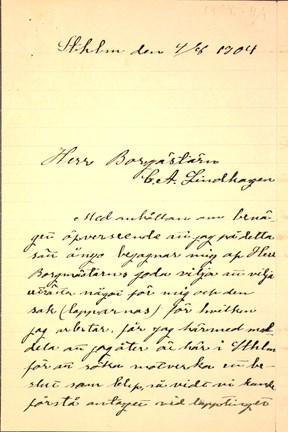 Sthlm den 4/8 1904
Herr Borgmästarn
C. A. Lindhagen
Med anhållan om benä-
get öfverseende att jag på detta
sätt ånyo begagnar mig af Herr
Borgmästarns goda vilja att vilja
uträtta något för mig och den
sak (lapparnas) för hvilken
jag arbetar, får jag härmed med
dela att jag åter är här i Sthlm
för att söka motverka en be-
slut som blef, så vidt vi kunde
förstå antaget vid lapptinget